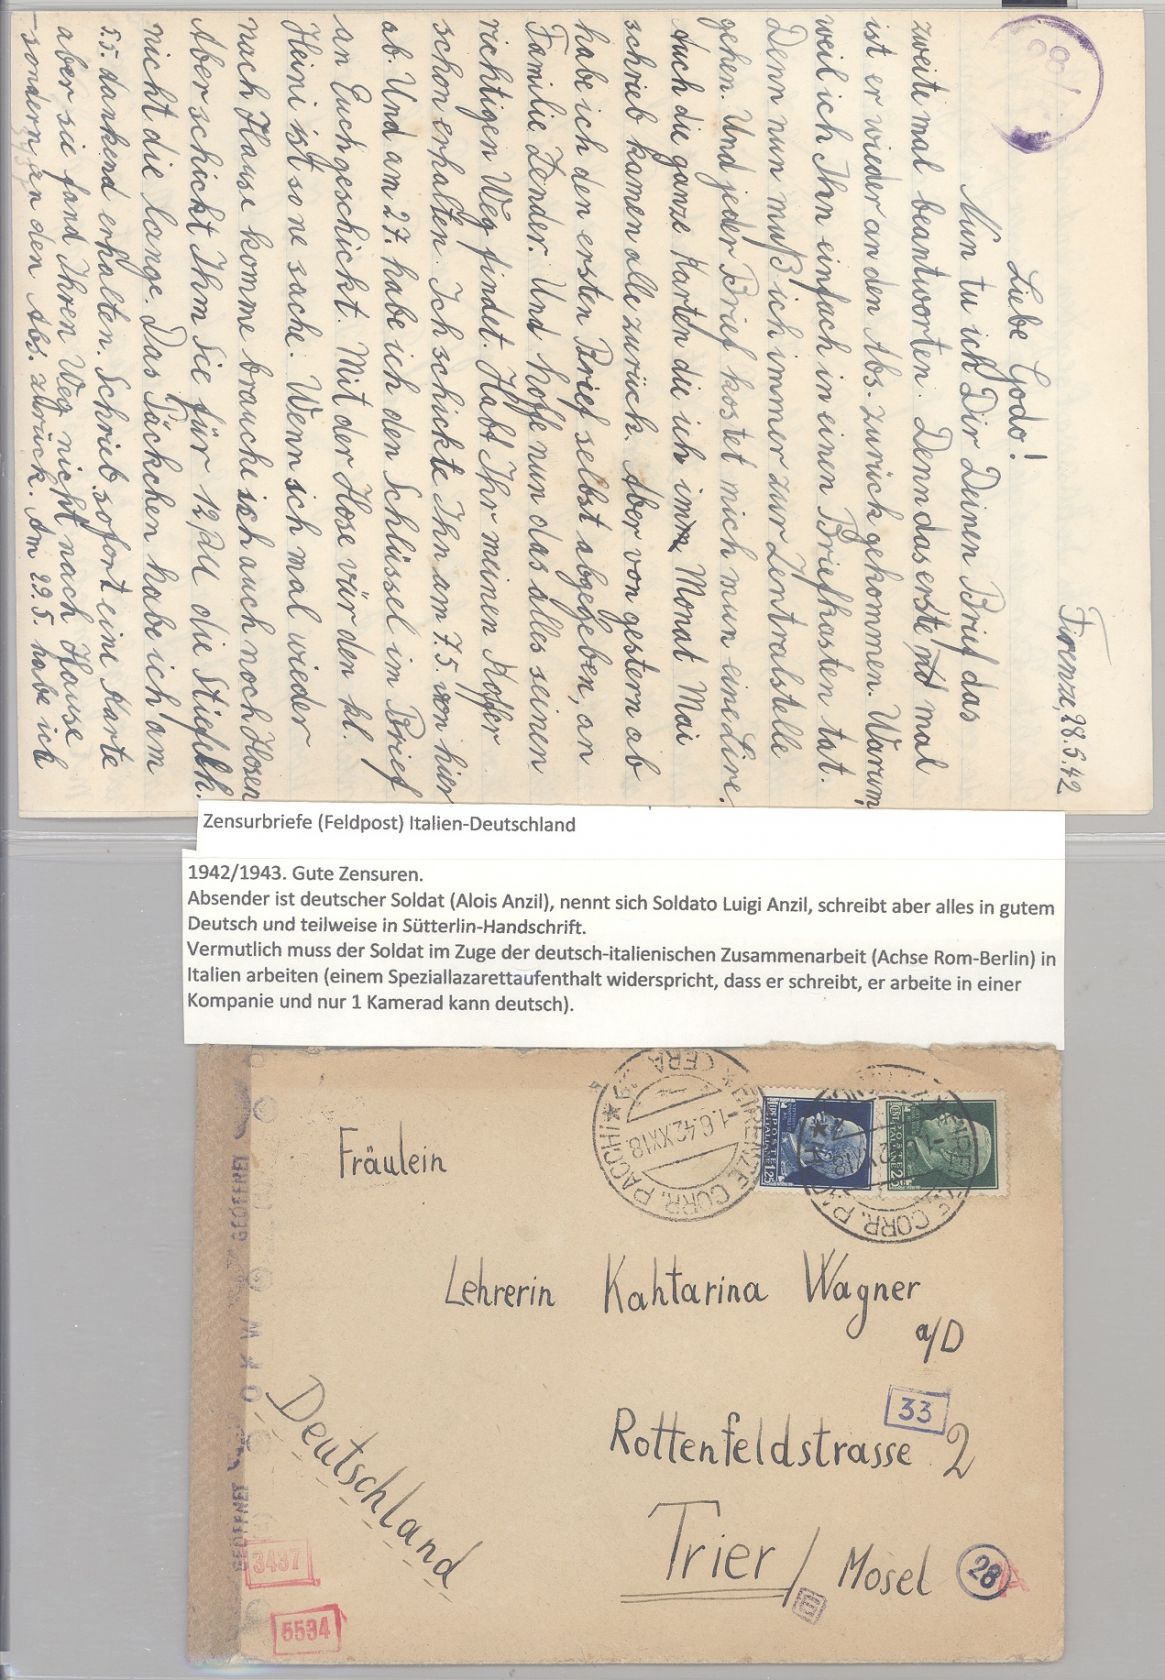 Firenze, 28.5.42
Liebe Godo!
Nun tu ich Dir Deinen Brief das
zweite mal beantworten. Denn das erste mal
ist er wieder an den Abs. zurück gekommen. Warum!
weil ich Ihn einfach in einen Briefkasten tat.
Denn nun muß ich immer zur Zentralstelle
gehen. Und jeder Brief kostet mich nun eine Lire.
Auch die ganze Karten die ich im Monat Mai
schrieb kamen alle zurück. Aber von gestern ab
habe ich den ersten Brief selbst abgegeben, an
Familie Zender. Und hoffe nun das alles seinen
richtigen Weg findet. Habt Ihr meinen Koffer
schon erhalten. Ich schickte Ihn am 7.5. von hier
ab. Und am 27. habe ich den Schlüssel im Brief
an Euch geschickt. Mit der Hose vür den kl.
Heini ist so ne sache. Wenn sich mal wieder
nach Hause komme brauche ich auch noch Hosen
Aber schickt Ihm Sie für 12, die Stiefelh.
nicht die lange. Das Päckchen habe ich am
5.5. dankend erhalten. Schrieb sofort eine Karte
aber sie fand Ihren Weg nicht nach Hause
sondern an den Abs. zurück. Am 29.5. habe ich
Zensurbriefe (Feldpost) Italien-Deutschland
1942/1943. Gute Zensuren.
Absender ist deutscher Soldat (Alois Anzil), nennt sich Soldato Luigi Anzil, schreibt aber alles in gutem
Deutsch und teilweise in Sütterlin-Handschrift.
Vermutlich muss der Soldat im Zuge der deutsch-italienischen Zusammenarbeit (Achse Rom-Berlin) in
Italien arbeiten (einem Speziallazarettaufenthalt widerspricht, dass er schreibt, er arbeite in einer
Kompanie und nur 1 Kamerad kann deutsch).
FIRENZE CORR. PACCHI
-1.6.42 XX 18
POSTE ITALIANE
1,25
POSTE ITALIANE
FIRENZE CORR. PACCHI
Fräulein
Lehrerin Kahtarina Wagner
a/D
33
Rottenfeldstrasse 2
Deutschland
Trier / Mosel
28
GEÖFFNET
O K W
GEÖFFNET
3437
5534